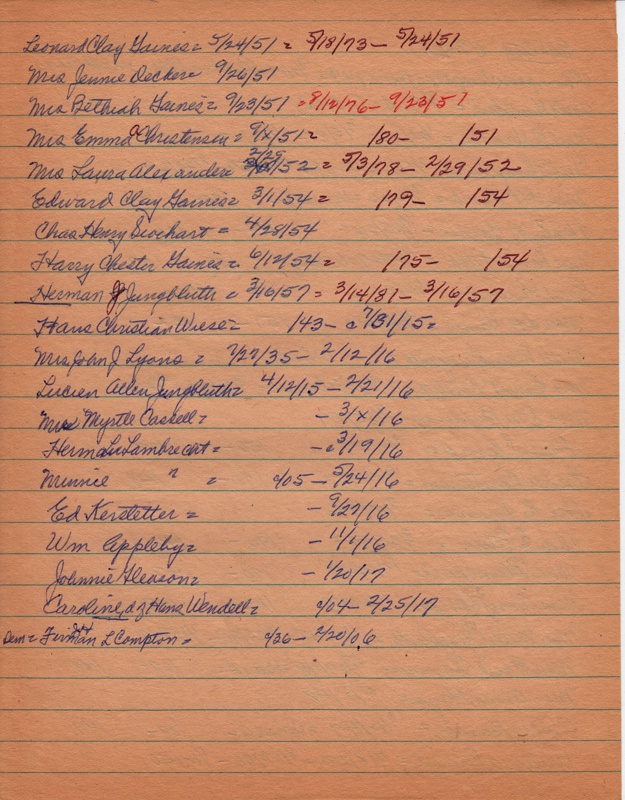 Leonard Clay Gaines = 5/24/51 = 5/18/73 - 5/24/51
Mrs Jennie Decker = 9/26/51
Mrs Bethiah Gaines = 9/23/51 = 8/12/76 - 9/23/51
Mrs Emma Christensen = 9/x/51 = /80 - /51
Mrs Laura Alexander = 2/29/52 = 5/3/78 - 2/29/52
Edward Clay Gaines = 3/1/54 = /79 - /54
Chas Henry = 4/28/54
Harry Chester Gaines = 6/12/54 = /75 - /54
Herman J Jungbluth = 3/16/57 = 3/14/81 - 3/16/57
Hans Christian Wiese = /43 - c 7/31/15 =
Mrs John J Lyons = 7/27/35 - 2/12/16
Lucien Allen Jungbluth = 4/12/15 - 2/21/16
Mrs Myrtle Cassell = - 3/x/16
Herman Lambrecht = - c 3/19/16
Minnie " = c/05 - 5/24/16
Ed Kerstetter = - 9/27/16
Wm Appleby = - 11/1/16
Johnnie Gleason = - 1/20/17
Caroline, d of Hans Wendell = c/04 - 2/25/17
Dem = L Compton = c/36 - 2/20/06